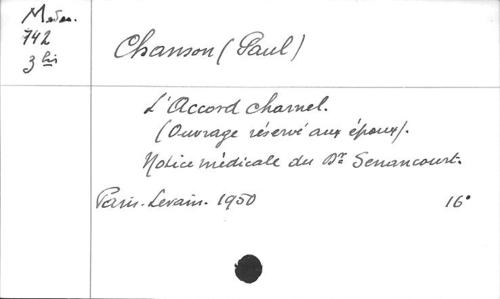 Meden.
742
3 bis
Chanson (Paul)
L'Accord charnel.
(Ouvrage réservé aux époux).
Notice médicale du Dr Senancourt.
Paris. Levain. 1950 16°